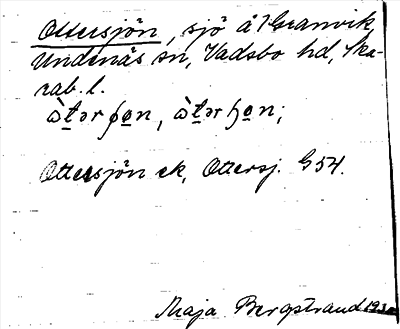 Ottersjön, sjö å Granvik,
Undenäs sn, Vadsbo hd, Ska-
rab. l.
ὼt̠ərʃo̠n, ὼt̠ərɧo̠n;
Ottersjön ek, Ottersj. G54.
Maja Bergstrand 193